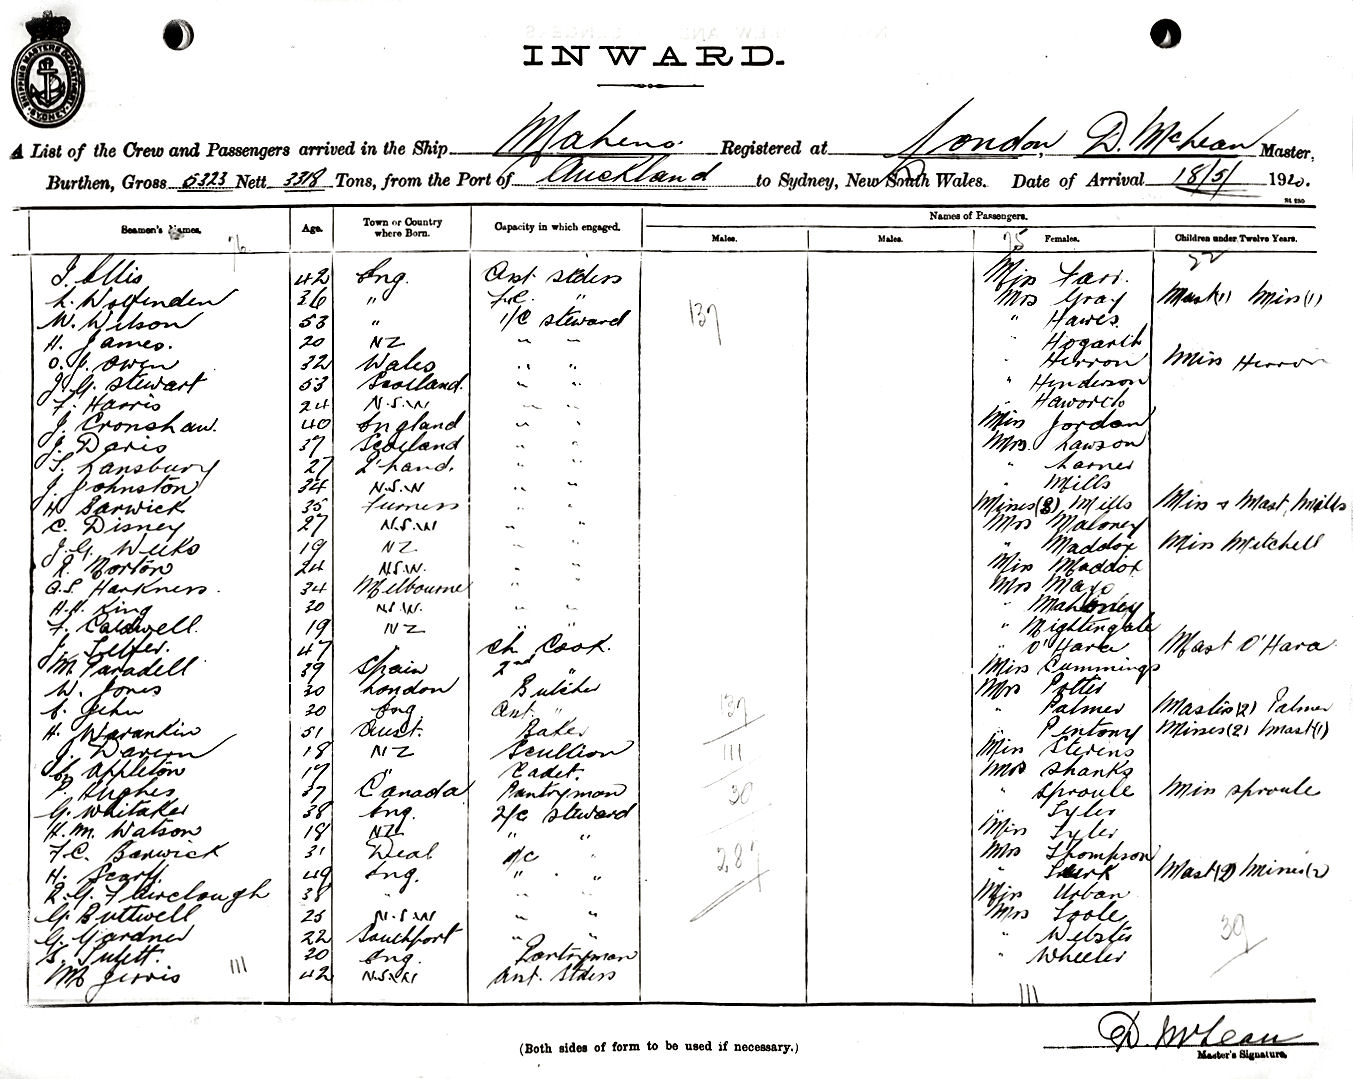 SHIPPING MASTERS DEPARTMENT SYDNEY
INWARD.
A List of the Crew and Passengers arrived in the Ship Maheno. Registered at London, D. McLean Master,
Burthen, Gross 5323 Nett 3318 Tons, from the Port of Auckland to Sydney, New South Wales. Date of Arrival 18/5/ 1920.
Names of Passengers.
Seamen's Names. Age. Town or Country where Born. Capacity in which engaged. Males. Males. Females. Children under Twelve Years.
76 75 22
J. Ellis 42 Eng. Asst Stdrs Miss Farr.
L. Wolfenden 36 " F.C. " Mrs Gray Mast(1) Miss(1)
W. Wilson 53 " 1/C steward 137 " Hawes
H. James. 20 NZ " " " Hogarth
O. J. Owen 32 Wales " " " Herron Miss Herron
J. G. Stewart 53 Scotland. " " " Henderson
F. Harris 24 N.S.W " " Haworth
J. Cronshaw. 40 England " " Miss Jordan
J. Davis 37 Scotland " " Mrs. Lawson
Lansbury 27 " " " Larner
J. Johnston 34 N.S.W " " " Mills
H Barwick 35 Furness " " Misses(3) Mills Miss & Mast, Mills
C. Disney 27 N.S.W " " Mrs Maloney
J. G. Weeks 19 NZ " " " Maddox Miss Mitchell
R. Morton 24 N.S.W. " " Miss Maddox
A.S. Harkness. 34 Melbourne " " Mrs Mayo
H.H. King 30 N.S.W. " " " Mahoney
F. Caldwell. 19 NZ " " " Nightingale
J. Telfer. 47 Ch Cook. " O'Hara Mast O'Hara
M. Paradell 39 Spain 2nd " Miss Cummings
W. Jones 30 London Butcher Mrs Potter
Jehu 30 Eng Ast. " 137 " Palmer Masters(2) Palmer
H. Warankin 51 Aust. Baker " Pentony Misses(2) Mast(1)
J. Davern 18 NZ Scullion 111 Miss Stevens
Appleton 17 " Cadet. Mrs Shanks
P. Hughes 37 Canada Pantryman 30 " Sproule Miss Sproule
G. Whitaker 38 Eng. 2/C steward " Tyler
H. M. Watson 18 NZ " " Miss Tyler
F.C. Barwick 31 Deal 1/C " Mrs Thompson
H. Scarff. 49 Eng. " " 287 " Mast(1) Misses(2)
R. G. Fairclough 38 " " " Miss Urban
G. Buttwell 25 N.S.W " " Mrs Toole
G. Gardner 22 Southport " " " Webster 30
30 Eng. Pantryman " Wheeler
Jervis 42 N.S.W Ast. Stdrs
111 111
D. McLean
Master's Signature.
(Both sides of form to be used if necessary.)